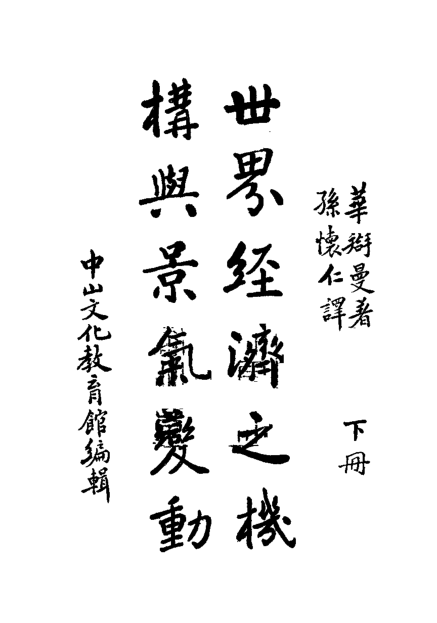 華爾曼著
孫懷仁譯
下冊
世界経濟之機
構與景氣變動
中山文化教育館編輯